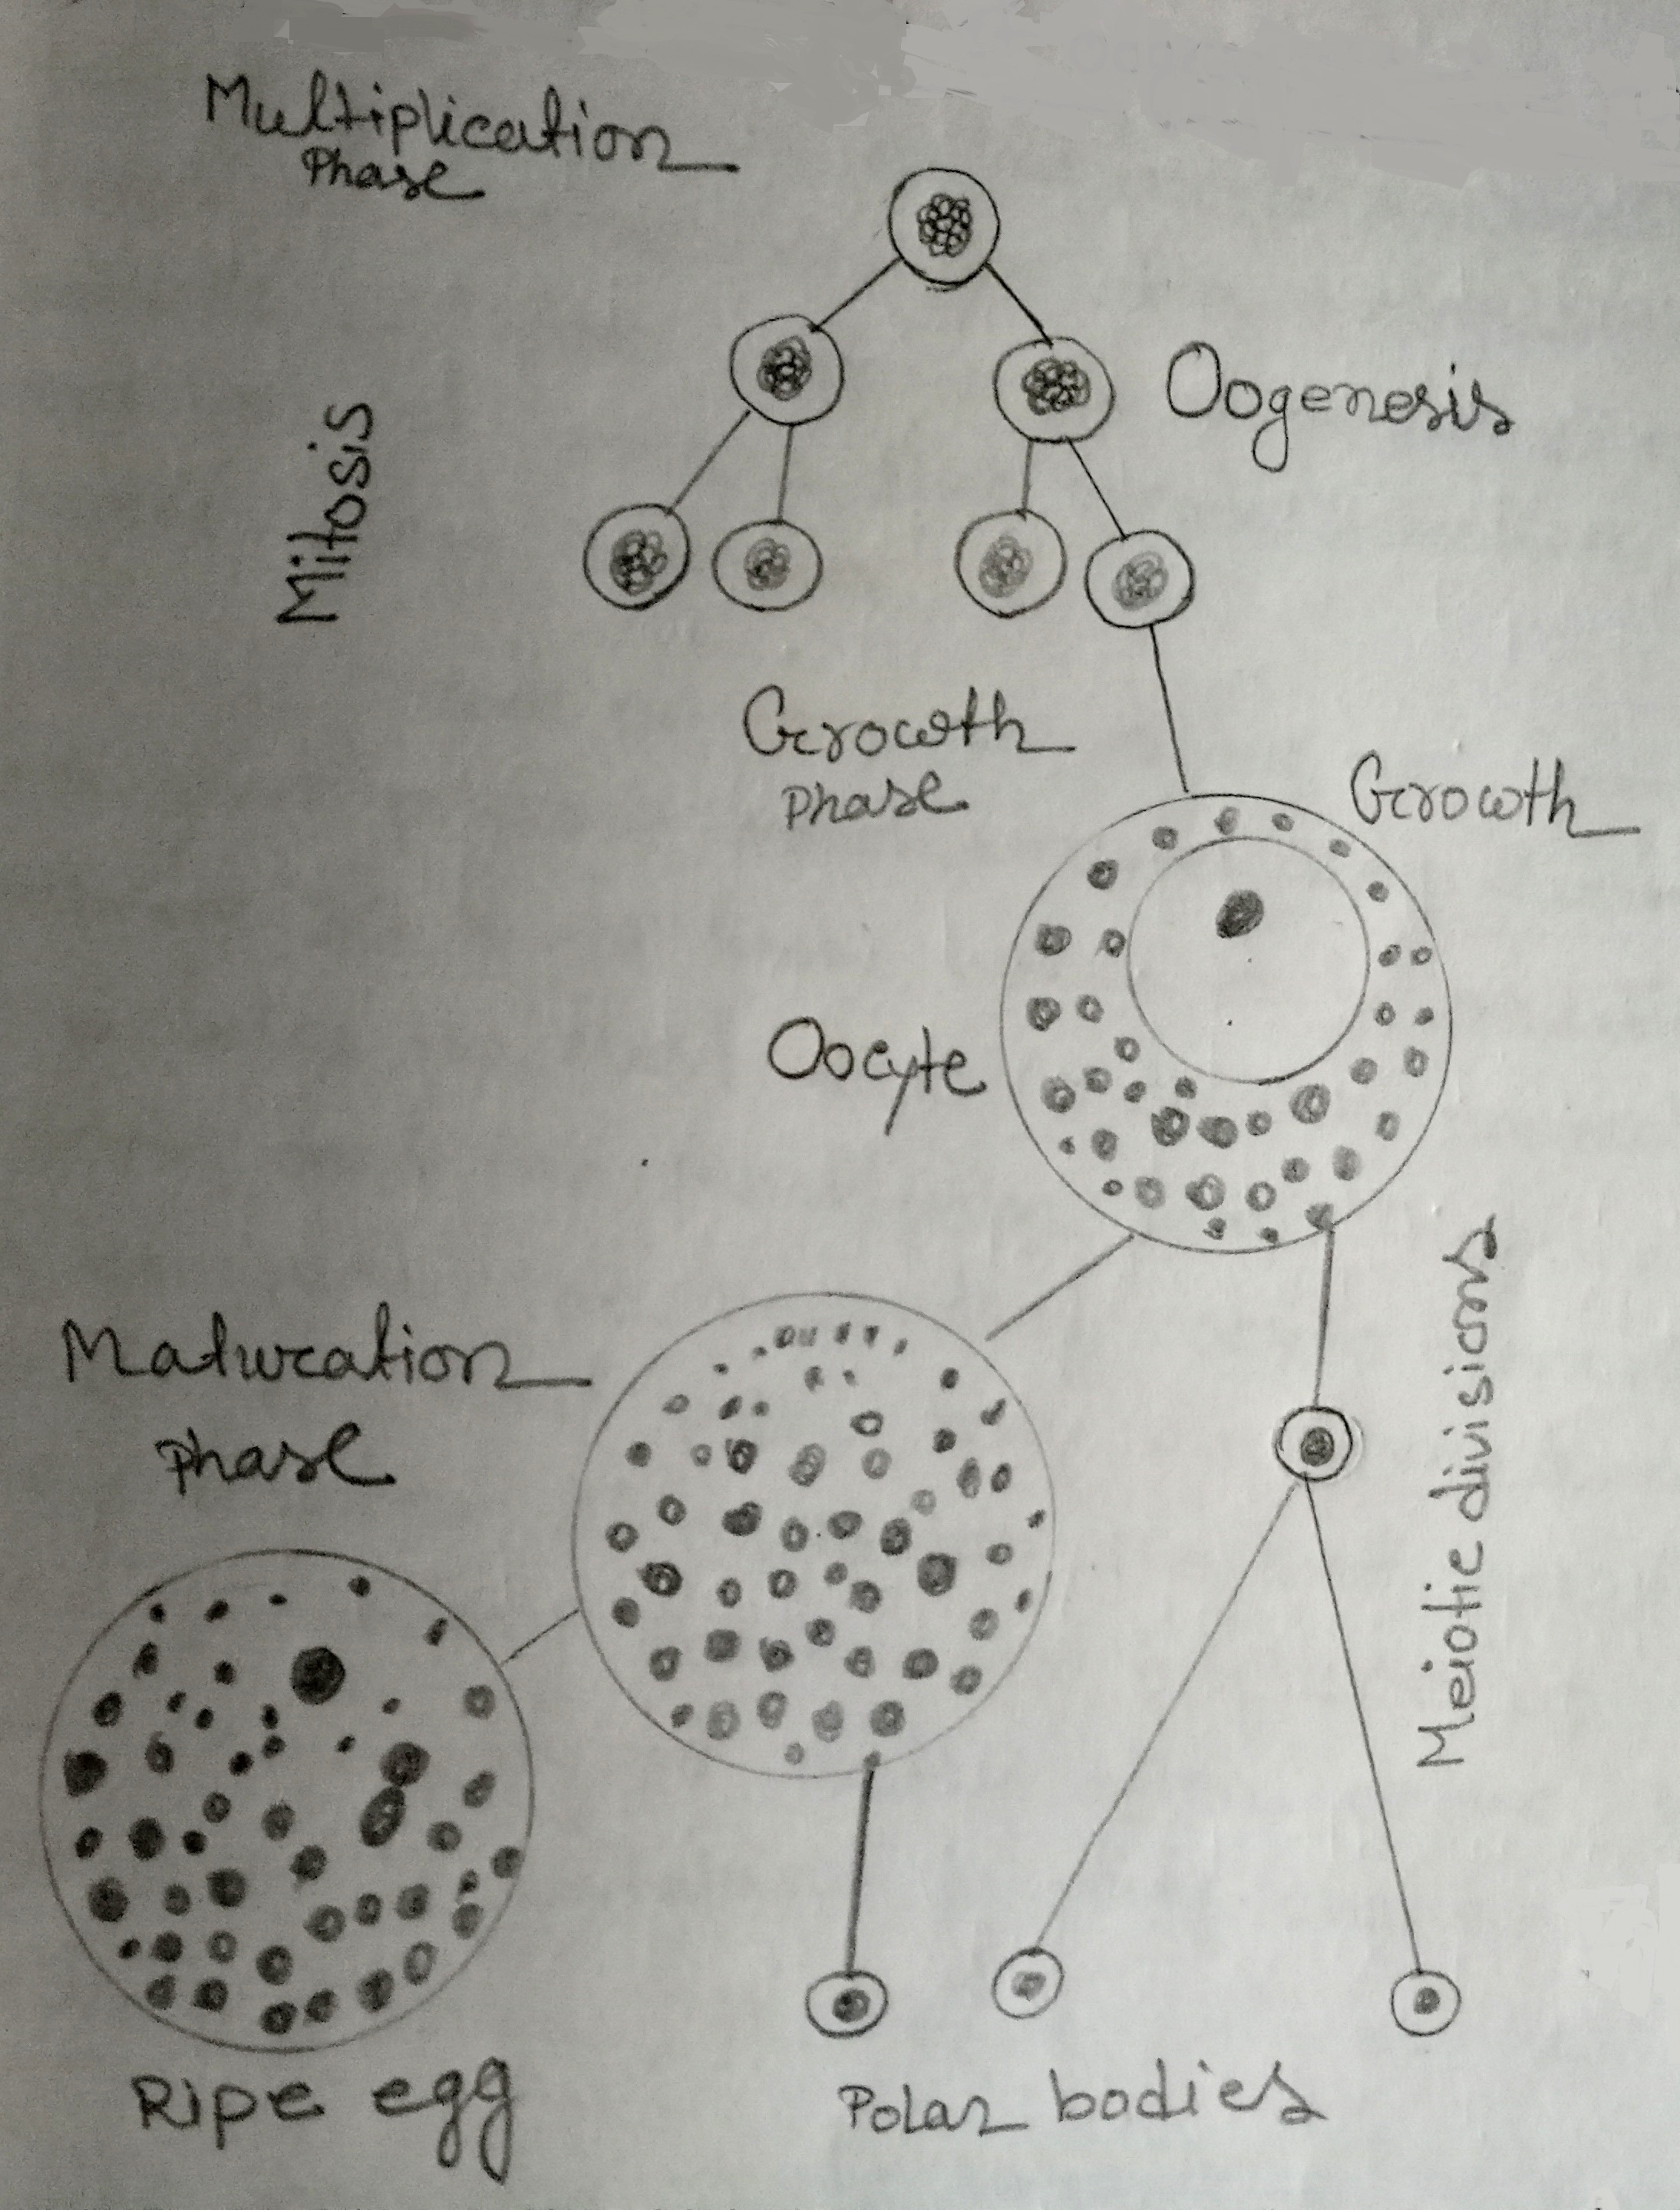 Multiplication
Phase
Oogenesis
Mitosis
Growth
Phase
Growth
Oocyte
Maturation
Phase
Meiotic divisions
Ripe egg
Polar bodies